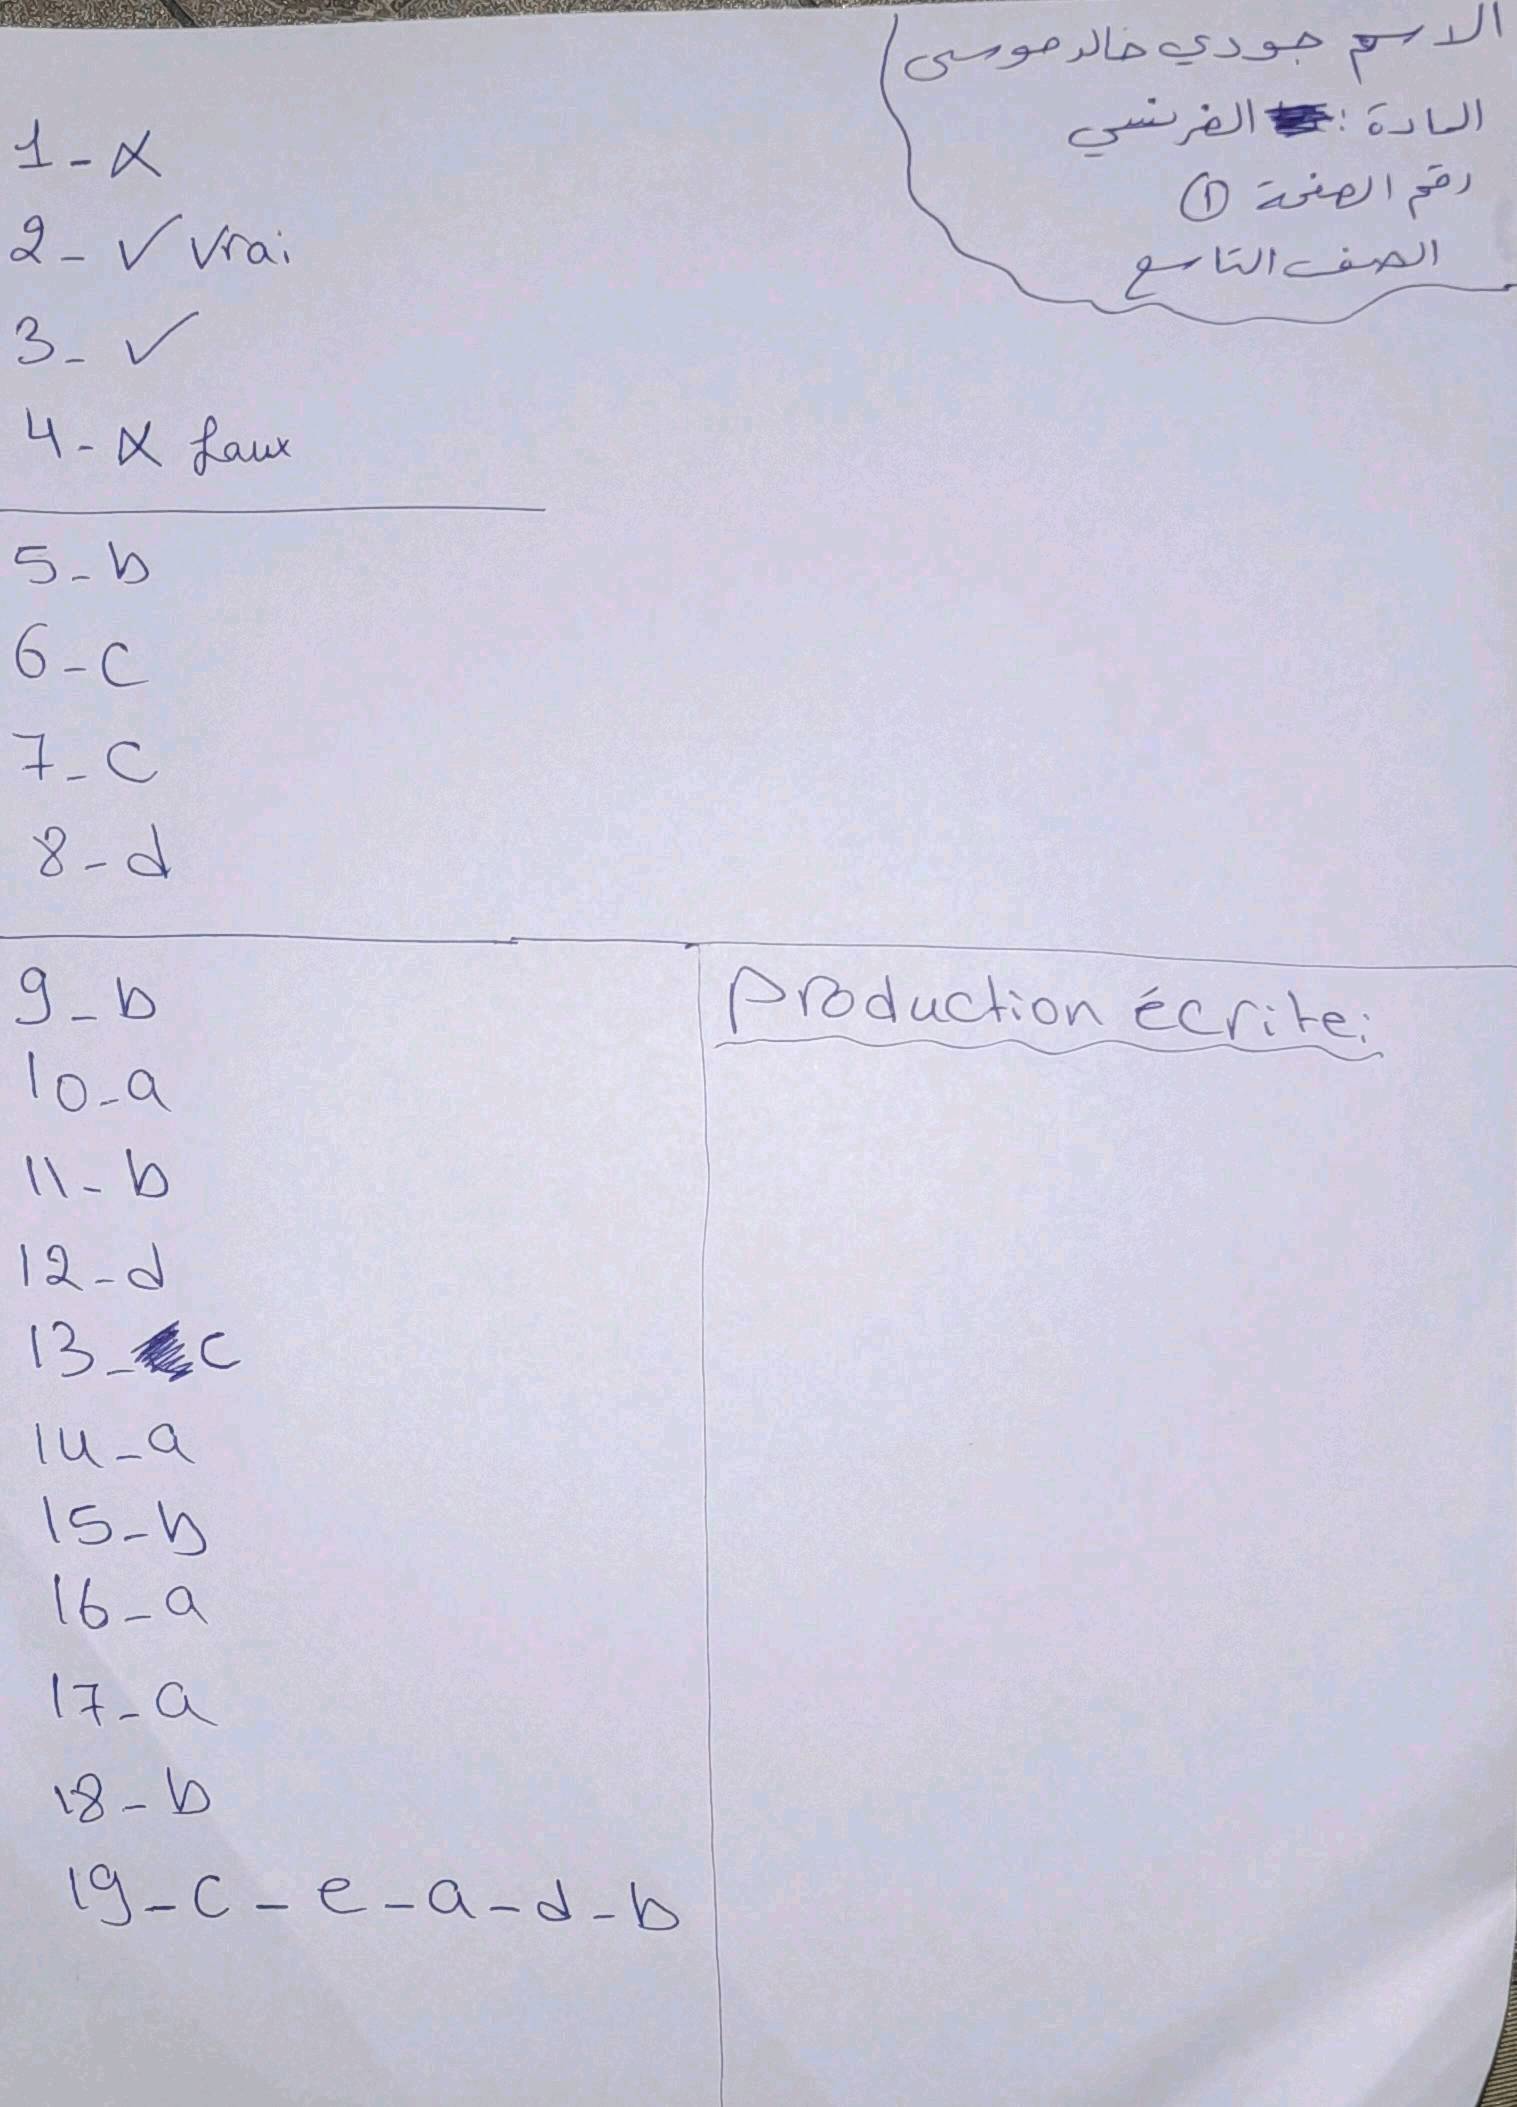 الاسم جودي خالد موسى
المادة : الفرنسي
رقم الصفحة ①
الصف التاسع
1 - x
2 - ✓ vrai
3 - ✓
4 - x faux
5 - b
6 - c
7 - c
8 - d
9 - b
10 - a
11 - b
12 - d
13 - c
14 - a
15 - b
16 - a
17 - a
18 - b
19 - c - e - a - d - b
Production écrite: